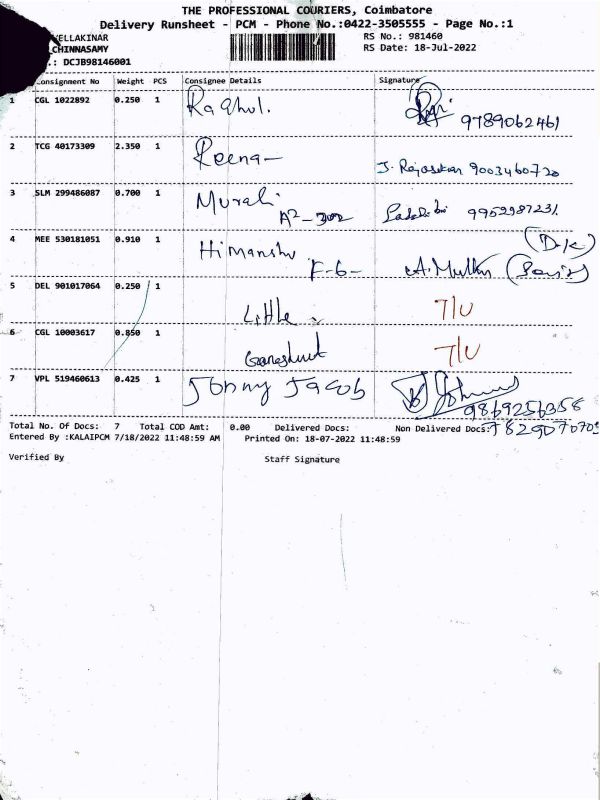 THE PROFESSIONAL COURIERS, Coimbatore
Delivery Runsheet - PCM - Phone No.:0422-3505555 - Page No.:1
VELLAKINAR RS No.: 981460
CHINNASAMY RS Date: 18-Jul-2022
.: DCJB98146001
Consignment No Weight PCS Consignee Details Signature
1 CGL 1022892 0.250 1 Raghul. 9789062461
2 TCG 40173309 2.350 1 Reena J. Rajasekar 9003460720
3 SLM 299486087 0.700 1 Murali A2-302 9952987231
4 MEE 530181051 0.910 1 Himanshu F-6- A. Muthu
5 DEL 901017064 0.250 1 Little T/U
6 CGL 10003617 0.850 1 Ganeshmt T/U
7 VPL 519460613 0.425 1 Jonny Jacob 9869256358
Total No. Of Docs: 7 Total COD Amt: 0.00 Delivered Docs: Non Delivered Docs: 7829070705
Entered By :KALAIPCM 7/18/2022 11:48:59 AM Printed On: 18-07-2022 11:48:59
Verified By Staff Signature